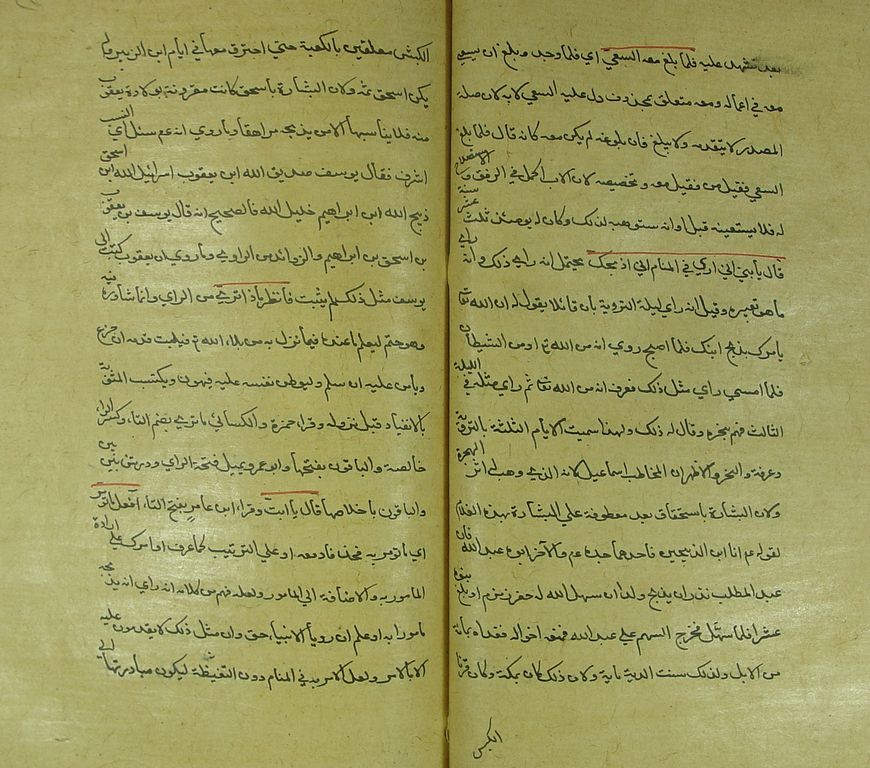 بعد تشهد عليه فلما بلغ معه السعي اي فلما وجد وبلغ ان يسعي
معه في اعماله ومعه متعلق بمحذوف دل عليه السعي لا به لان صلة
المصدر لا يتقدمه ولا يبلغ فان بلوغه لم يكن معه كانه قال فلما بلغ
السعي فقيل مع من فقيل معه وتخصيصه لان الاب اكمل في الرفق والاستصلاح
له فلا يستعينه قبل اوانه ستوهبه لذلك وكان له يومئذ ثلث عشر سنة
قال يا بني اني اري في المنام اني اذبحك يحتمل انه راي ذلك وانه راي
ما هو تعبيره وقيل انه راي ليلة التروية بان قائلا يقول له ان الله تعا
يامرك بذبح ابنك فلما اصبح روي انه من الله ع او من الشيطان
فلما امسي راي مثل ذلك فعرف انه من الله تعا ثم راي مثله في الليلة
الثالث فهم بنحره وقال له ذلك ولهذا سميت الايام الثلثة بالتروية
وعرفة والنحر والاظهر ان المخاطب اسماعيل لانه الذي وهب له اثر الهجرة
ولان البشارة باسحق بعد معطوفة علي البشارة بهذه الغلام
لقوله عم انا ابن الذبيحين فاحدهما جده عم والآخر ابوه عبد الله فان
عبد المطلب نذر ان يذبح ولدا ان سهل الله له حفر زمزم او بلغ بنوه
عشرا فلما سهل فخرج السهم علي عبد الله فمنعه اخواله ففداه بمائة
من الابل ولذلك سنت الدية ماية ولان ذلك كان بمكة وكان قرنا
الكبش
الكبش معلقين بالكعبة حتي احترق معها في ايام ابن الزبير ولم
يكن اسحق ثمه ولان البشارة باسحق كانت مقرونة بولادة يعقوب
منه فلا يناسبها الامر بذبحه مراهقا وما روي انه عم سئل اي النسب
اشرف فقال يوسف صديق الله ابن يعقوب اسرائيل الله ابن اسحق
ذبيح الله ابن ابراهيم خليل الله فالصحيح انه قال يوسف بن يعقوب
بن اسحق بن ابراهيم والزوائد من الراوي وما روي ان يعقوب كتب الي
يوسف مثل ذلك لم يثبت فانظر ماذا تري من الراي وانما شاوره فيه
وهو حتم ليعلم ما عنده فيما نزل به من بلاء الله ع فيثبت قدمه ان جزع
ويامن عليه ان سلم وليوطن نفسه عليه فيهون ويكتسب المثوبة
بالانقياد قبل نزوله وقرا حمزة والكسائي ما تري بضم التاء وكسر الراء
خالصة والباقون بفتحها وابو عمرو يميل فتحة الراي وورش بين بين
والباقون باخلاصها قال يا ابت وقراء ابن عامر بفتح التاء افعل ما تؤمر
اي ما تومر به فحذفا دفعه او علي الترتيب كما عرف او امرك علي ارادة
المامور به والاضافة الي المامور ولعله فهم من كلامه انه راي انه يذبحه
مامورا به او علم ان رويا الانبياء حق وان مثل ذلك لا يقدمون عليه
الا بالامر ولعل الامر به في المنام دون اليقظة ليكون مبادرتهما الي